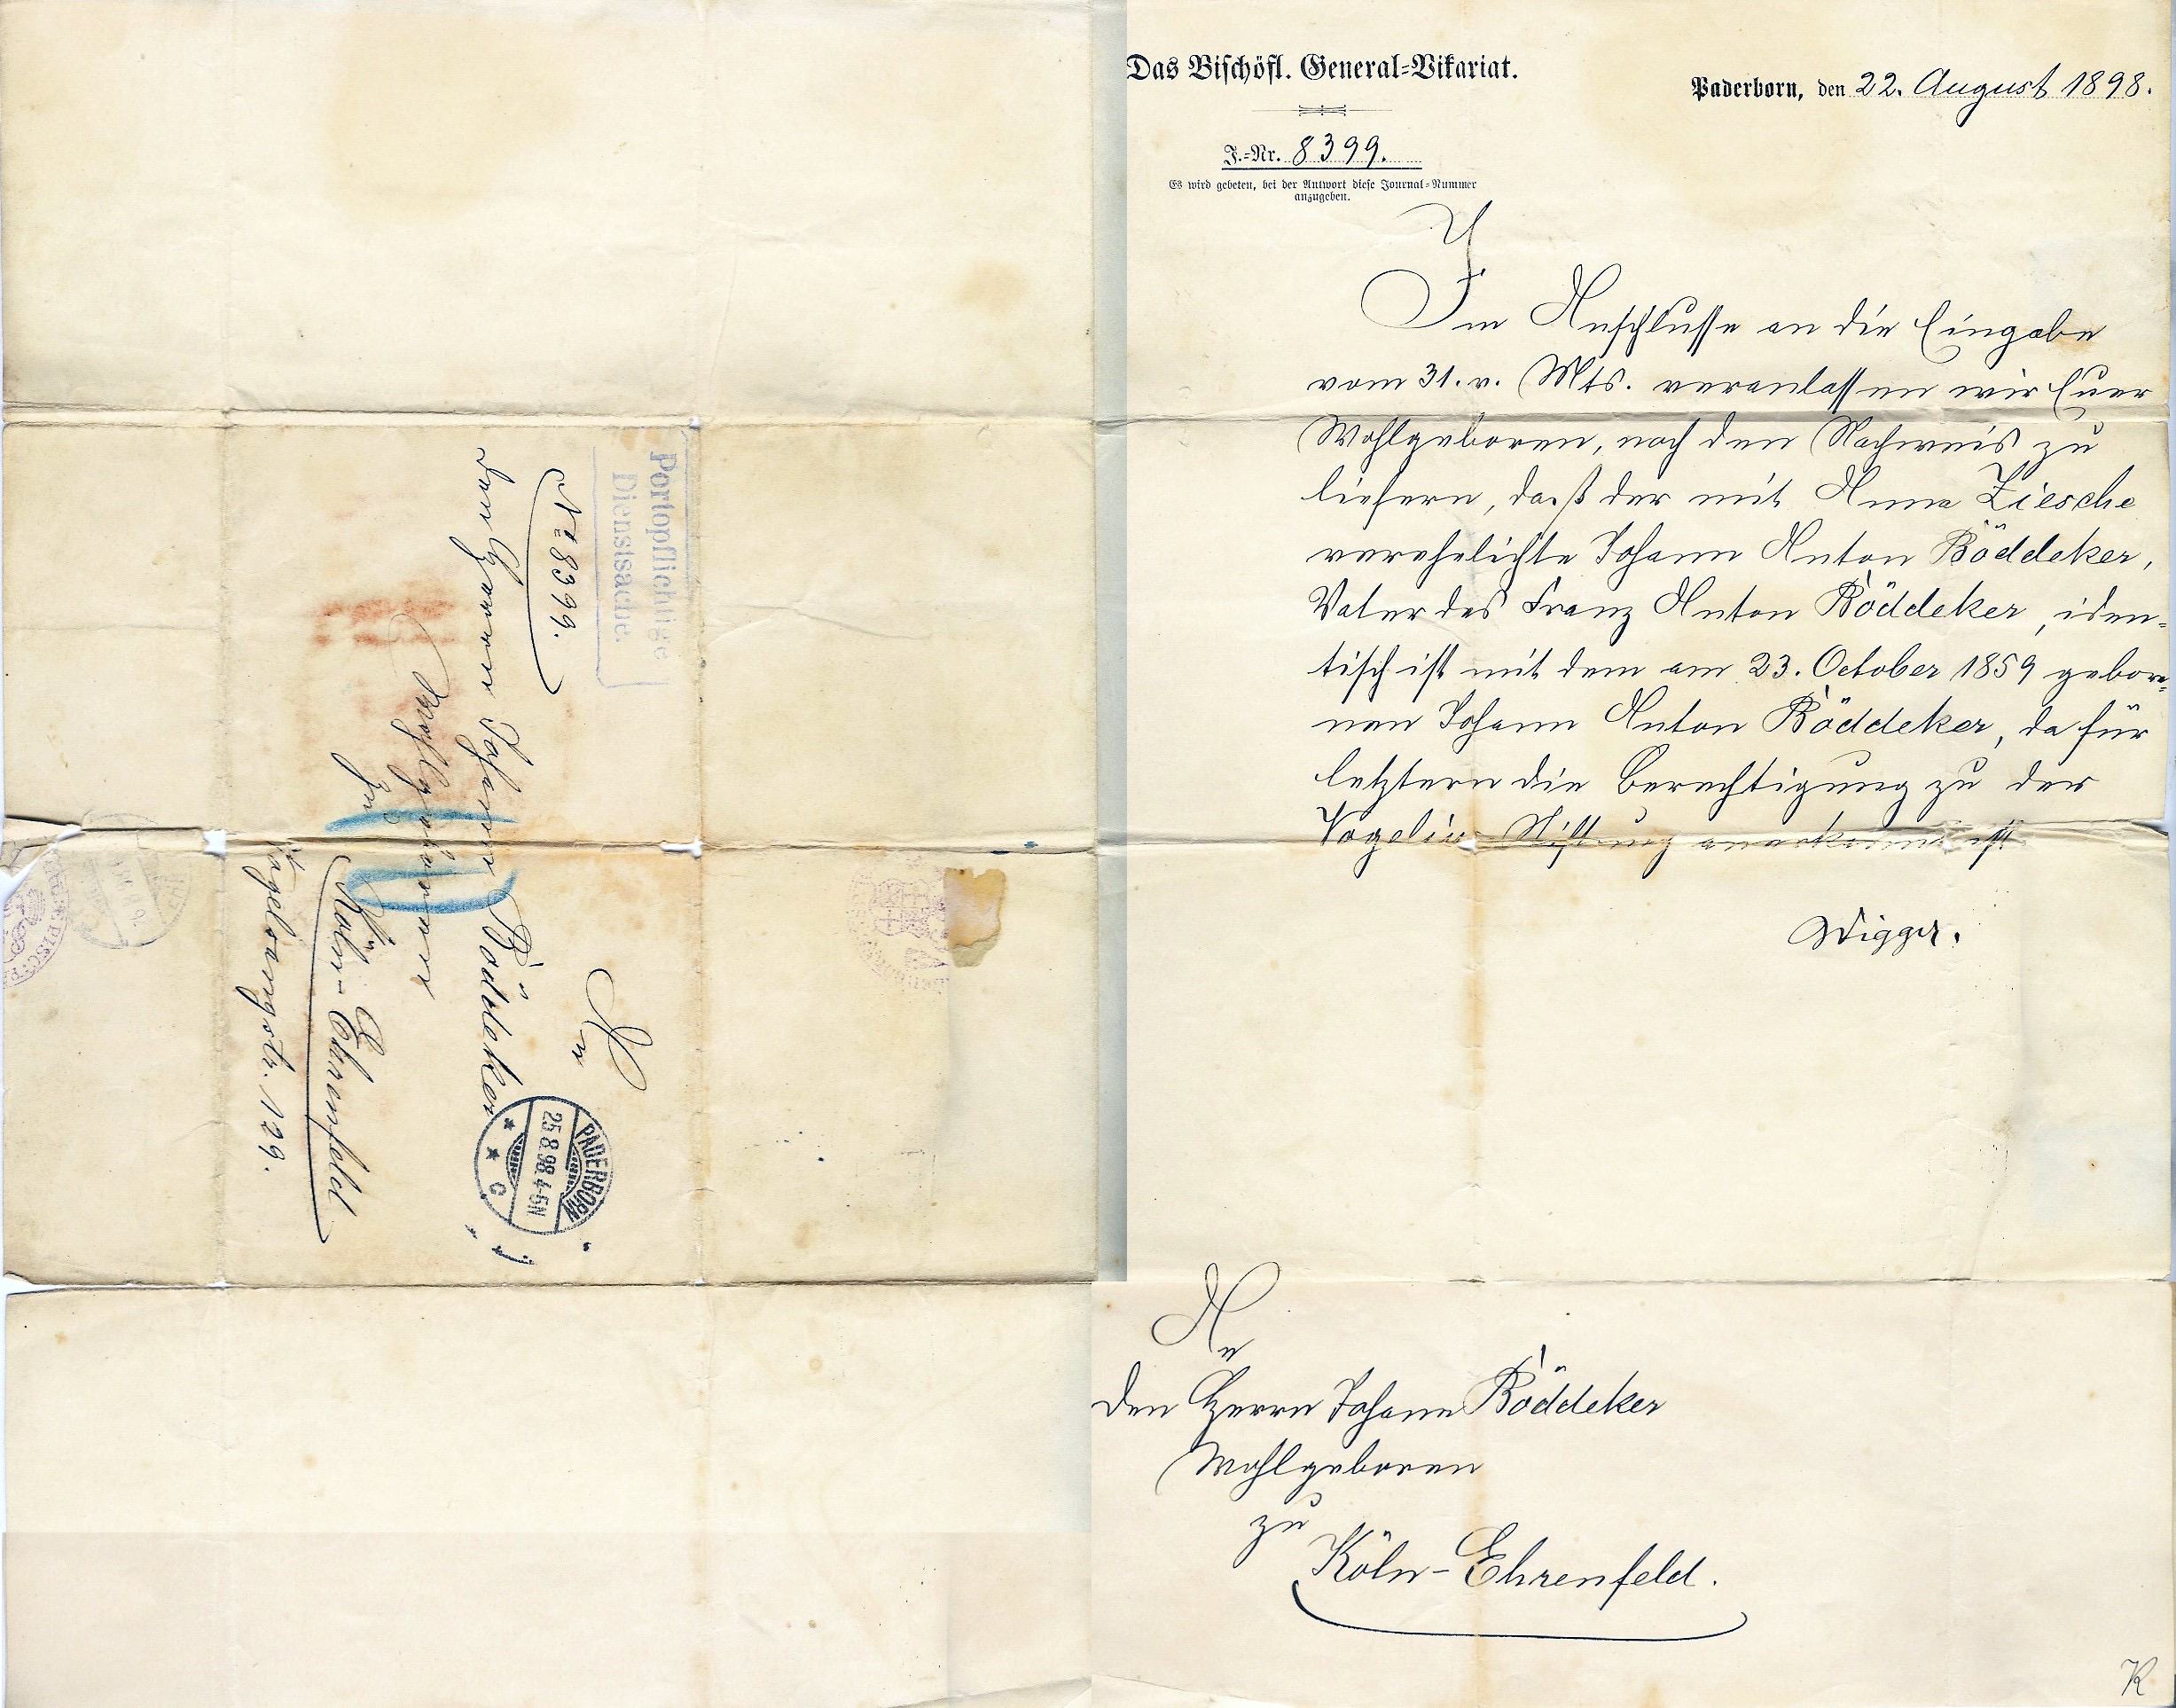 Das Bischöfl. General-Vikariat.
Paderborn, den 22. August 1898.
J.-Nr. 8399.
Es wird gebeten, bei der Antwort diese Journal-Nummer
anzugeben.
Im Anschlusse an die Eingabe
vom 31. v. Mts. veranlassen wir Euer
Wohlgeboren, noch den Nachweis zu
liefern, daß der mit Anna Ziesche
verehelichte Johann Anton Böddeker,
Vater des Franz Anton Böddeker, iden-
tisch ist mit dem am 23. October 1859 gebore-
nen Johann Anton Böddeker, da für
letztern die Berechtigung zu der
Vogelius-Stiftung anerkannt ist
Wigger.
An
den Herrn Johann Böddeker
Wohlgeboren
zu
Köln-Ehrenfeld.
K
Portopflichtige
Dienstsache.
No 8399.
An
den Herrn Johann Böddeker
Wohlgeboren
zu
Köln-Ehrenfeld
Vogelsangstr. 129.
PADERBORN
25.8.98. 4-5N
* * C